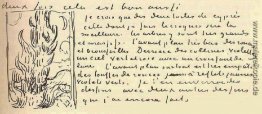 deux fois cela est bon aussi
Je crois que des deux toiles de cyprès
celle dont je fais le croquis sera la
meilleure. les arbres y sont très grands
et massifs. l'avant plan très bas des ronces
et broussailles. Derrière des collines violettes
un ciel vert et rose avec un croissant de
lune. L'avant plan surtout est très empaté
des touffes de ronces à reflets jaunes
violets verts. Je t'en enverrai des
dessins avec deux autres dessins
que j'ai encore faits